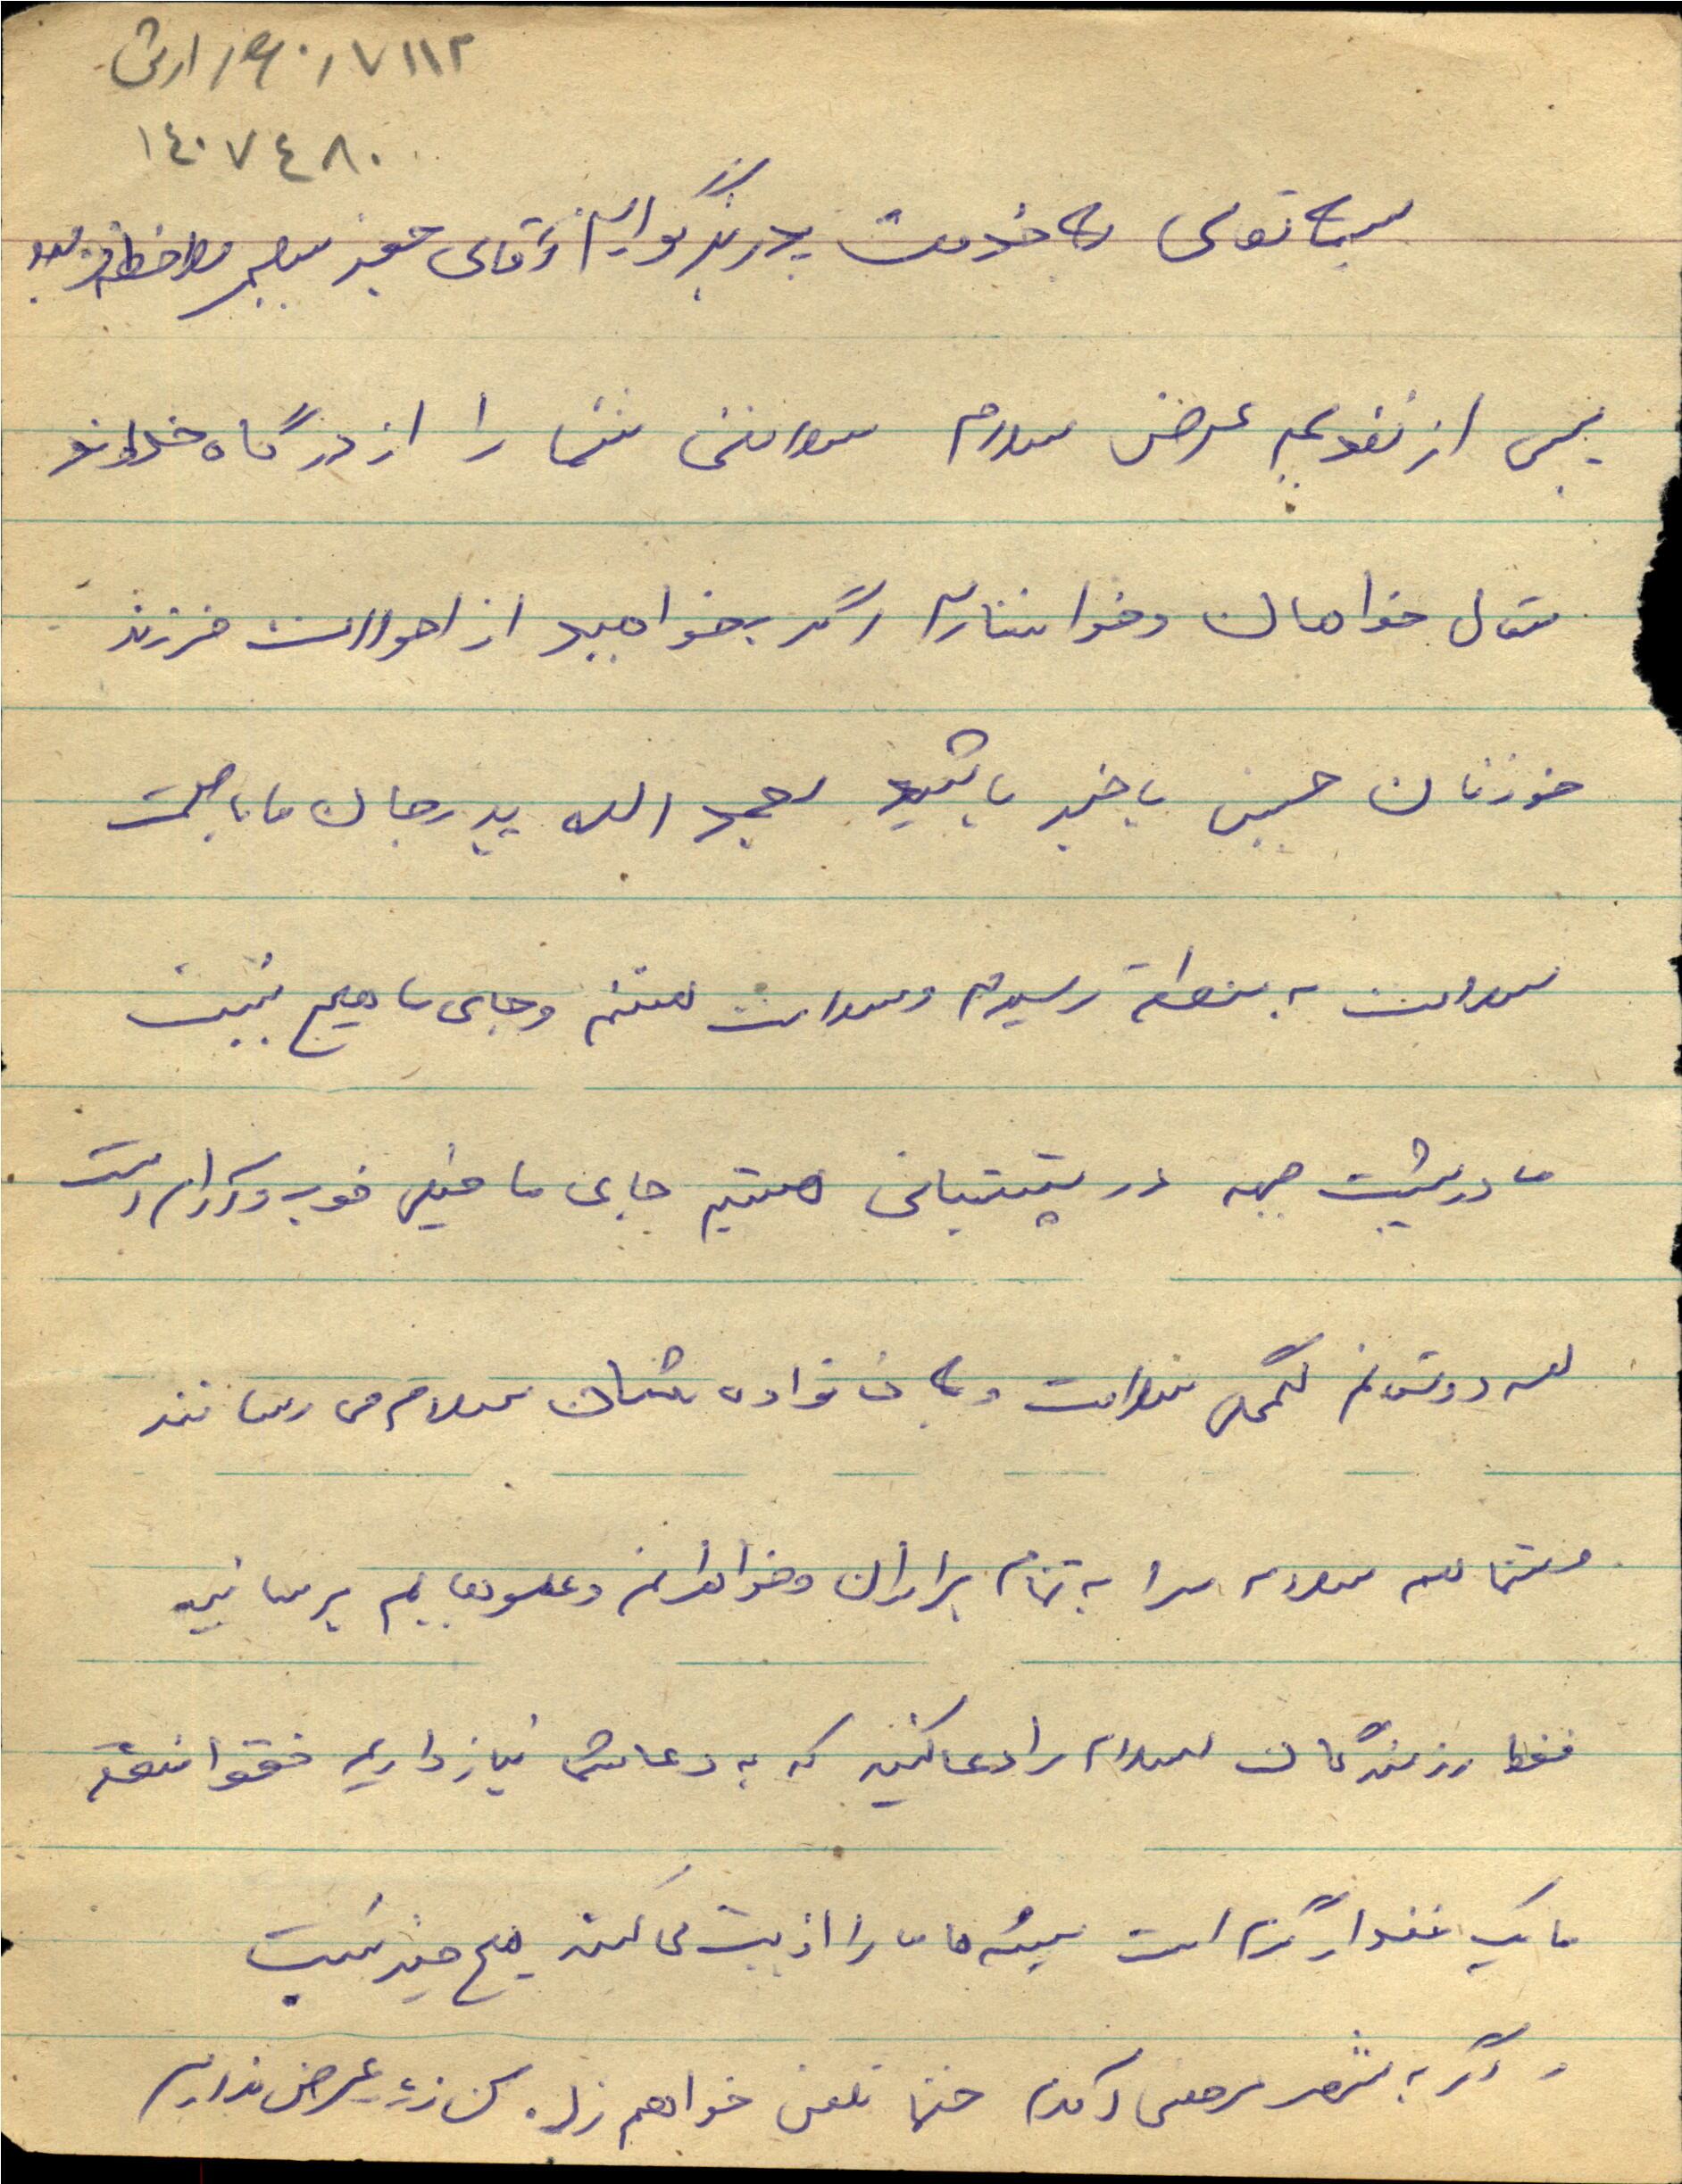 ۱۱۲ ۷
۱٤۰۷٤۸۰
بسمه تعالی به خدمت پدر بزرگوارم آقای ملاحظه فرمایید
پس از تقدیم عرض سلام سلامتی شما را از درگاه خداوند
متعال خواهان و خواستارم اگر بخواهید از احوالات فرزند
خودتان حسین باخبر باشید بحمد الله پدر جان ما با
سلامت به منطقه رسیدم و سلامت هستم و جای ما هیچ نیست
ما در پشت جبهه در پشتیبانی هستیم جای ما خیلی خوب و آرام است
همه دوستانم همگی سلامت و به خانواده شان سلام می رسانند
و شما هم سلام مرا به تمام برادران و خواهرانم و عموهایم برسانید
فقط رزمندگان اسلام را دعا کنید که به دعا شما نیاز داریم فقط منطقه
ما یک مقدار گرم است پشه ها ما را اذیت می کند هیچ خبر نیست
و اگر به شهر مرخصی آمدم حتما تلفن خواهم زد. عرض ندارم